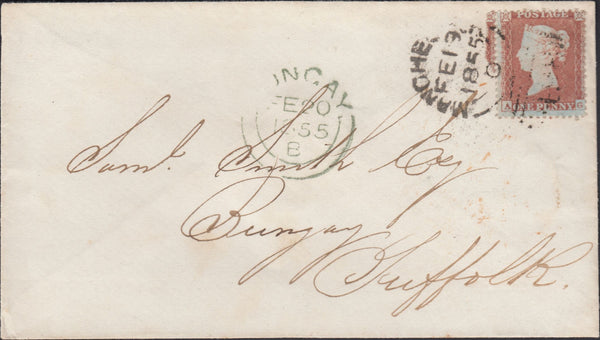 POSTAGE
A ONE PENNY G
MANCHE
FE 19
1855
UNGAY
FE 20
1855
B
Saml. Smith Esq
Bungay
Suffolk.